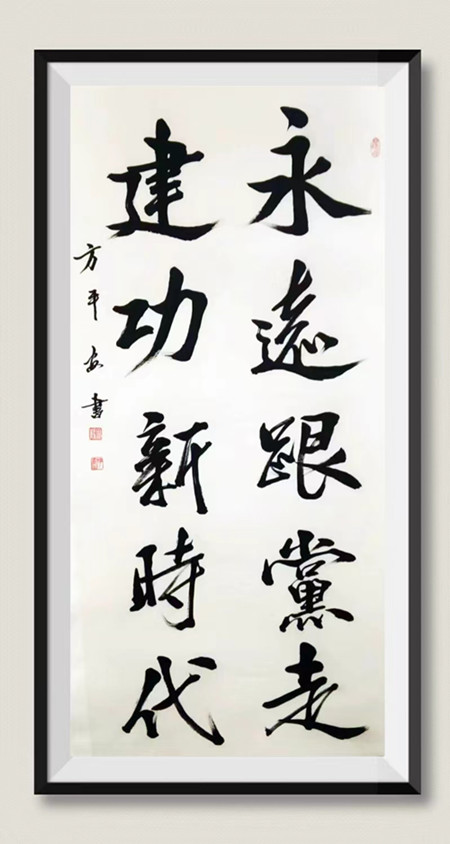 永遠跟黨走
建功新時代
方平安書